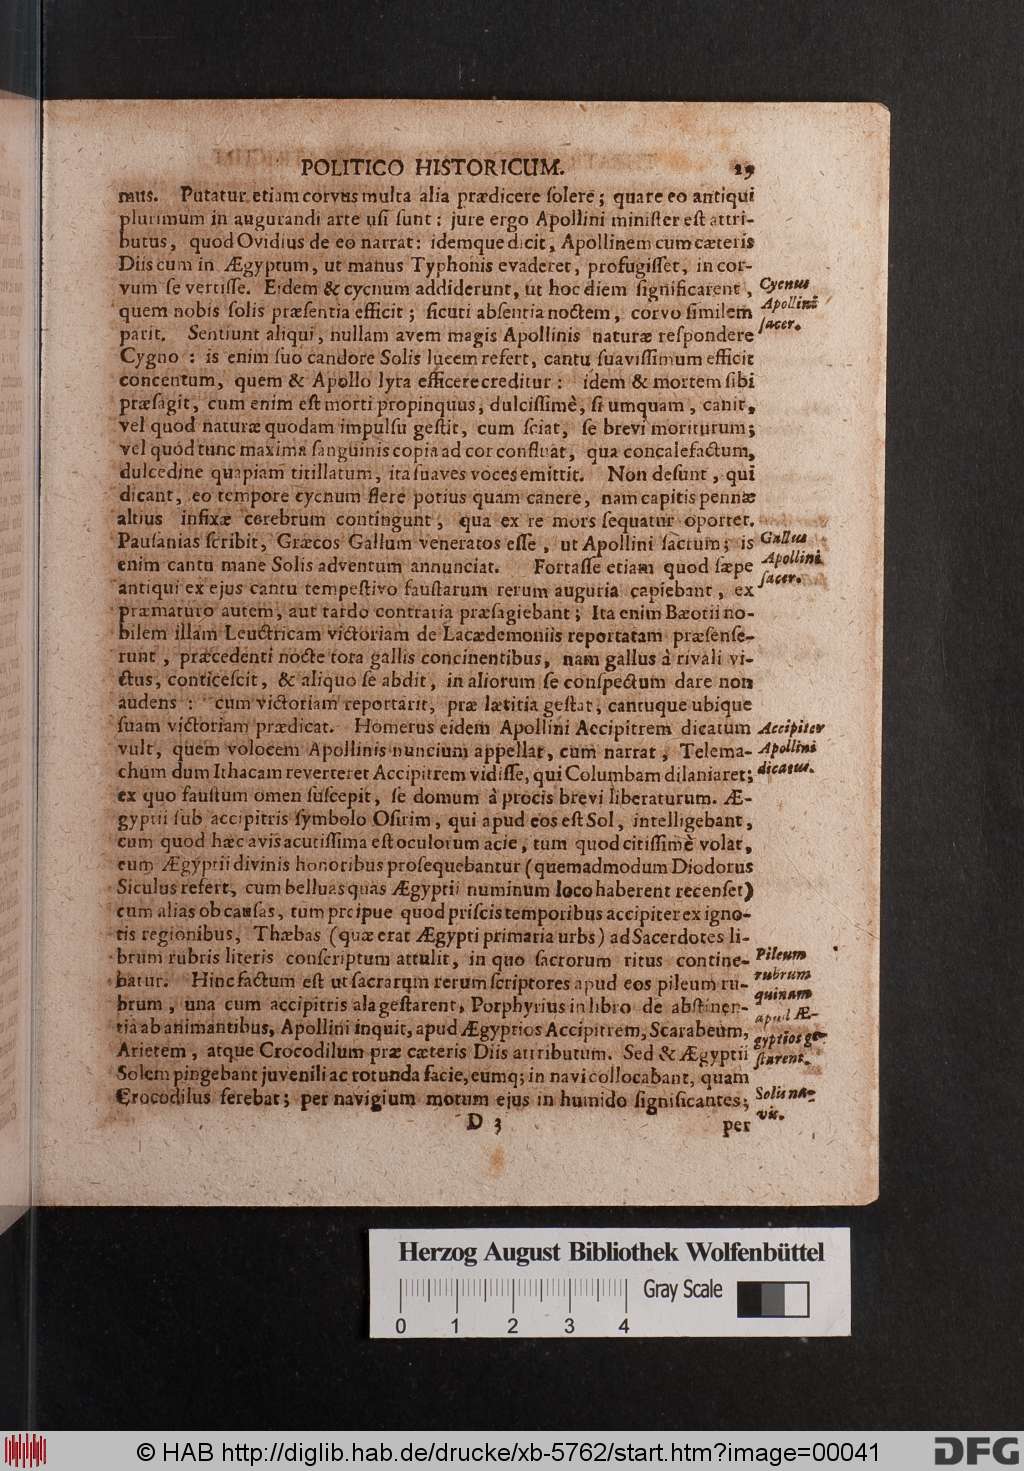 POLITICO HISTORICUM. 29
mus. Putatur etiam corvus multa alia prædicere ſolere; quare eo antiqui
plurimum in augurandi arte uſi ſunt: jure ergo Apollini miniſter eſt attri-
butus, quod Ovidius de eo narrat: idemque dicit, Apollinem cum cæteris
Diis cum in Ægyptum, ut manus Typhonis evaderet, profugiſſet, in cor-
vum ſe vertiſſe. Eidem & cycnum addiderunt, ut hoc diem ſignificarent, Cycnus
quem nobis ſolis præſentia efficit; ſicuti abſentia noctem, corvo ſimilem Apollini
parit. Sentiunt aliqui, nullam avem magis Apollinis naturæ reſpondere ſacer.
Cygno: is enim ſuo candore Solis lucem refert, cantu ſuaviſſimum efficit
concentum, quem & Apollo lyra efficere creditur: idem & mortem ſibi
præſagit, cum enim eſt morti propinquus, dulciſſimè, ſi umquam, canit,
vel quod naturæ quodam impulſu geſtit, cum ſciat, ſe brevi moriturum;
vel quod tunc maxima ſanguinis copia ad cor confluat, qua concalefactum,
dulcedine quapiam titillatum, ita ſuaves voces emittit. Non deſunt, qui
dicant, eo tempore cycnum flere potius quam canere, nam capitis pennæ
altius infixæ cerebrum contingunt, qua ex re mors ſequatur oportet.
Pauſanias ſcribit, Græcos Gallum veneratos eſſe, ut Apollini ſacrum; is Gallus
enim cantu mane Solis adventum annunciat. Fortaſſe etiam quod ſæpe Apollini
antiqui ex ejus cantu tempeſtivo fauſtarum rerum auguria capiebant, ex ſacer.
præmaturo autem, aut tardo contraria præſagiebant; Ita enim Bæotii no-
bilem illam Leuctricam victoriam de Lacædemoniis reportatam præſenſe-
runt, præcedenti nocte tota gallis concinentibus, nam gallus à rivali vi-
ctus, conticeſcit, & aliquo ſe abdit, in aliorum ſe conſpectum dare non
audens: cum victoriam reportarit, præ lætitia geſtat, cantuque ubique
ſuam victoriam prædicat. Homerus eidem Apollini Accipitrem dicatum Accipiter
vult, quem volocem Apollinis nuncium appellat, cum narrat, Telema- Apollini
chum dum Ithacam reverteret Accipitrem vidiſſe, qui Columbam dilaniaret; dicatus.
ex quo fauſtum omen ſuſcepit, ſe domum à procis brevi liberaturum. Æ-
gyptii ſub accipitris ſymbolo Oſirim, qui apud eos eſt Sol, intelligebant,
cum quod hæc avis acutiſſima eſt oculorum acie, tum quod citiſſimè volat,
eum Ægyptii divinis honoribus proſequebantur (quemadmodum Diodorus
Siculus refert, cum belluas quas Ægyptii numinum loco haberent recenſet)
cum alias ob cauſas, tum prcipue quod priſcis temporibus accipiter ex igno-
tis regionibus, Thæbas (quæ erat Ægypti primaria urbs) ad Sacerdotes li-
brum rubris literis conſcriptum attulit, in quo ſacrorum ritus contine- Pileum
batur. Hinc factum eſt ut ſacrarum rerum ſcriptores apud eos pileum ru- rubrum
brum, una cum accipitris ala geſtarent, Porphyrius in libro de abſtinen- quinam
tia ab animantibus, Apollini inquit, apud Ægyptios Accipitrem, Scarabeum, apud Æ-
Arietem, atque Crocodilum præ cæteris Diis attributum. Sed & Ægyptii gyptios ge-
Solem pingebant juvenili ac rotunda facie, eumq; in navi collocabant, quam ſtarent.
Crocodilus ferebat; per navigium motum ejus in humido ſignificantes; Solis na-
vis.
D 3 per
Herzog August Bibliothek Wolfenbüttel
Gray Scale
0 1 2 3 4
© HAB http://diglib.hab.de/drucke/xb-5762/start.htm?image=00041
DFG